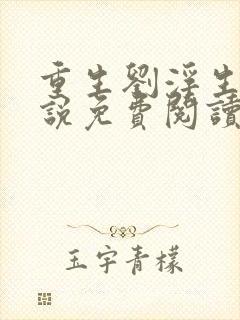 重生劉浮生
說免費閱讀
玉宇青檬